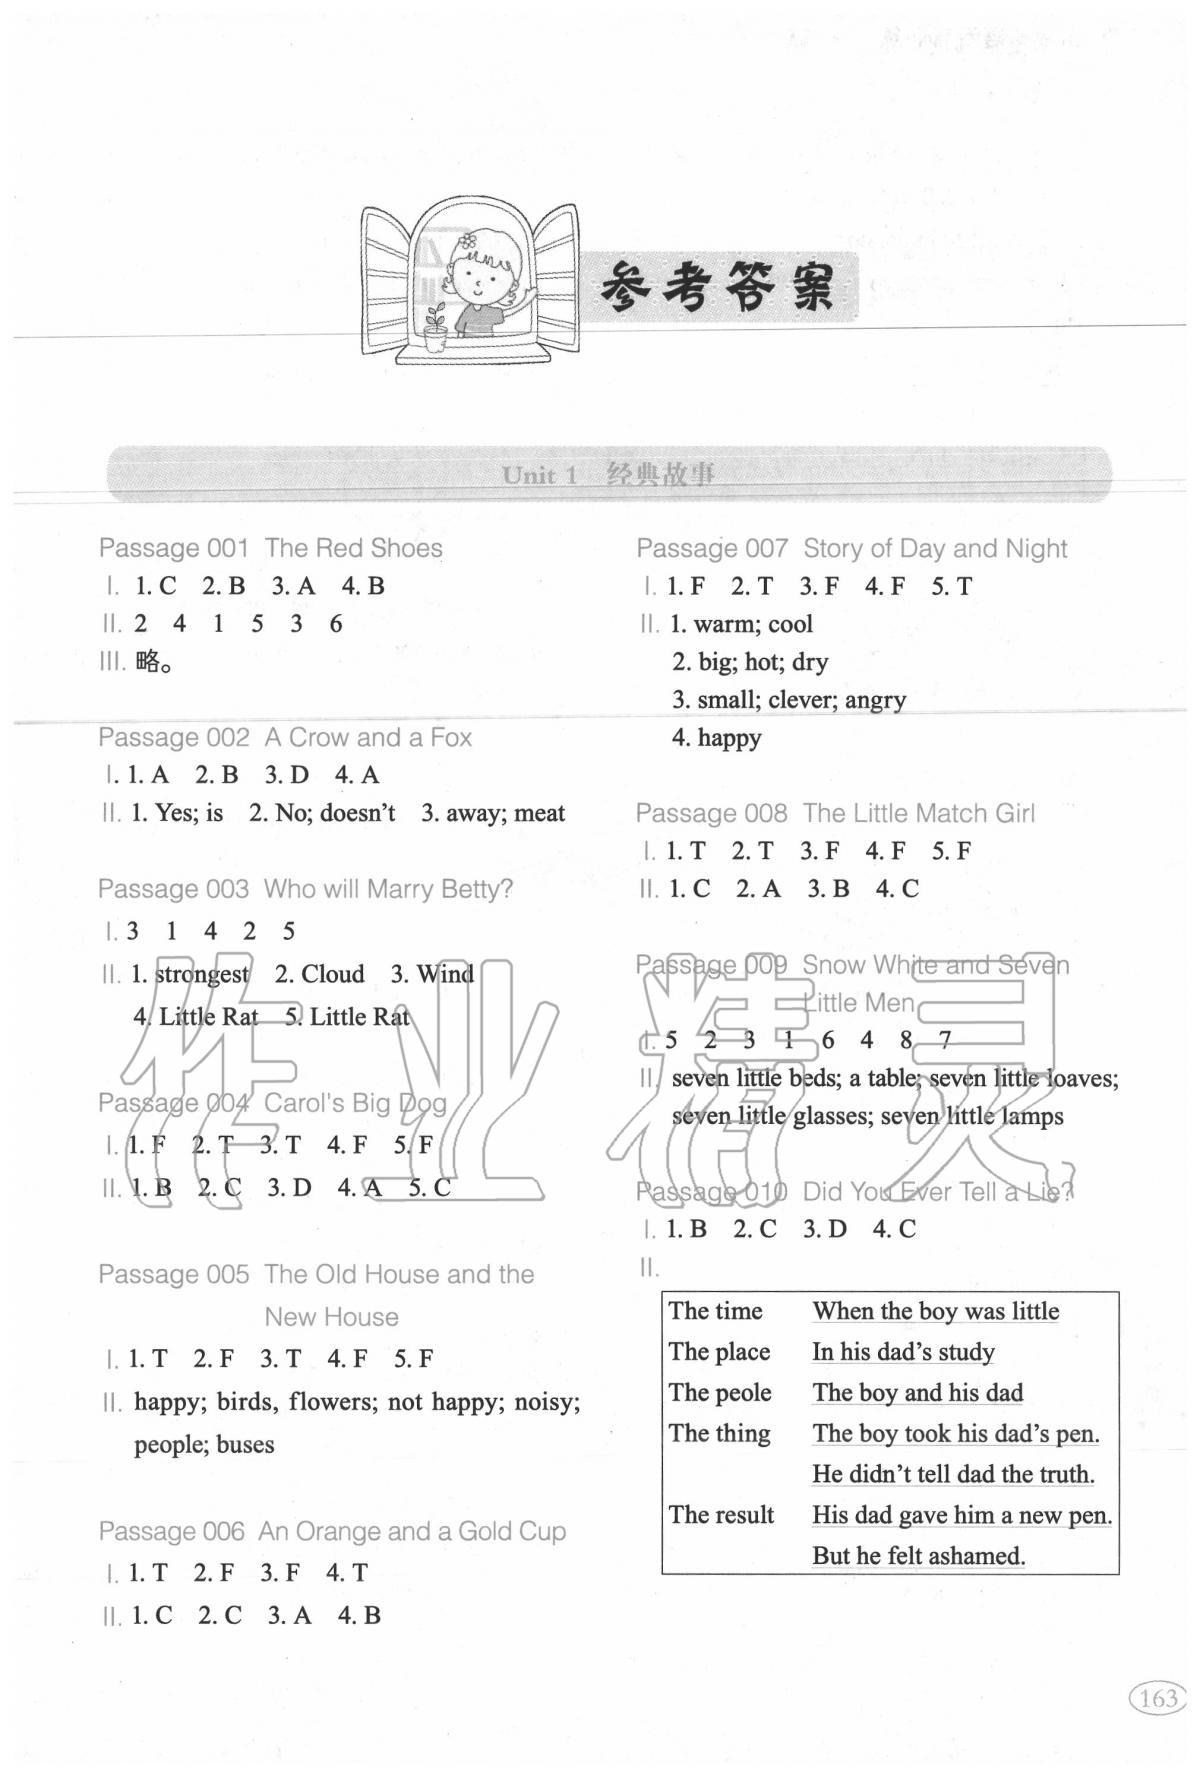 参考答案
Unit 1 经典故事
Passage 001 The Red Shoes
I. 1. C 2. B 3. A 4. B
II. 2 4 1 5 3 6
III. 略。
Passage 002 A Crow and a Fox
I. 1. A 2. B 3. D 4. A
II. 1. Yes; is 2. No; doesn't 3. away; meat
Passage 003 Who will Marry Betty?
I. 3 1 4 2 5
II. 1. strongest 2. Cloud 3. Wind
4. Little Rat 5. Little Rat
Passage 004 Carol's Big Dog
I. 1. F 2. T 3. T 4. F 5. F
II. 1. B 2. C 3. D 4. A 5. C
Passage 005 The Old House and the
New House
I. 1. T 2. F 3. T 4. F 5. F
II. happy; birds, flowers; not happy; noisy;
people; buses
Passage 006 An Orange and a Gold Cup
I. 1. T 2. F 3. F 4. T
II. 1. C 2. C 3. A 4. B
Passage 007 Story of Day and Night
I. 1. F 2. T 3. F 4. F 5. T
II. 1. warm; cool
2. big; hot; dry
3. small; clever; angry
4. happy
Passage 008 The Little Match Girl
I. 1. T 2. T 3. F 4. F 5. F
II. 1. C 2. A 3. B 4. C
Passage 009 Snow White and Seven
Little Men
I. 5 2 3 1 6 4 8 7
II. seven little beds; a table; seven little loaves;
seven little glasses; seven little lamps
Passage 010 Did You Ever Tell a Lie?
I. 1. B 2. C 3. D 4. C
II.
The time When the boy was little
The place In his dad's study
The peole The boy and his dad
The thing The boy took his dad's pen.
He didn't tell dad the truth.
The result His dad gave him a new pen.
But he felt ashamed.
作业精灵
163